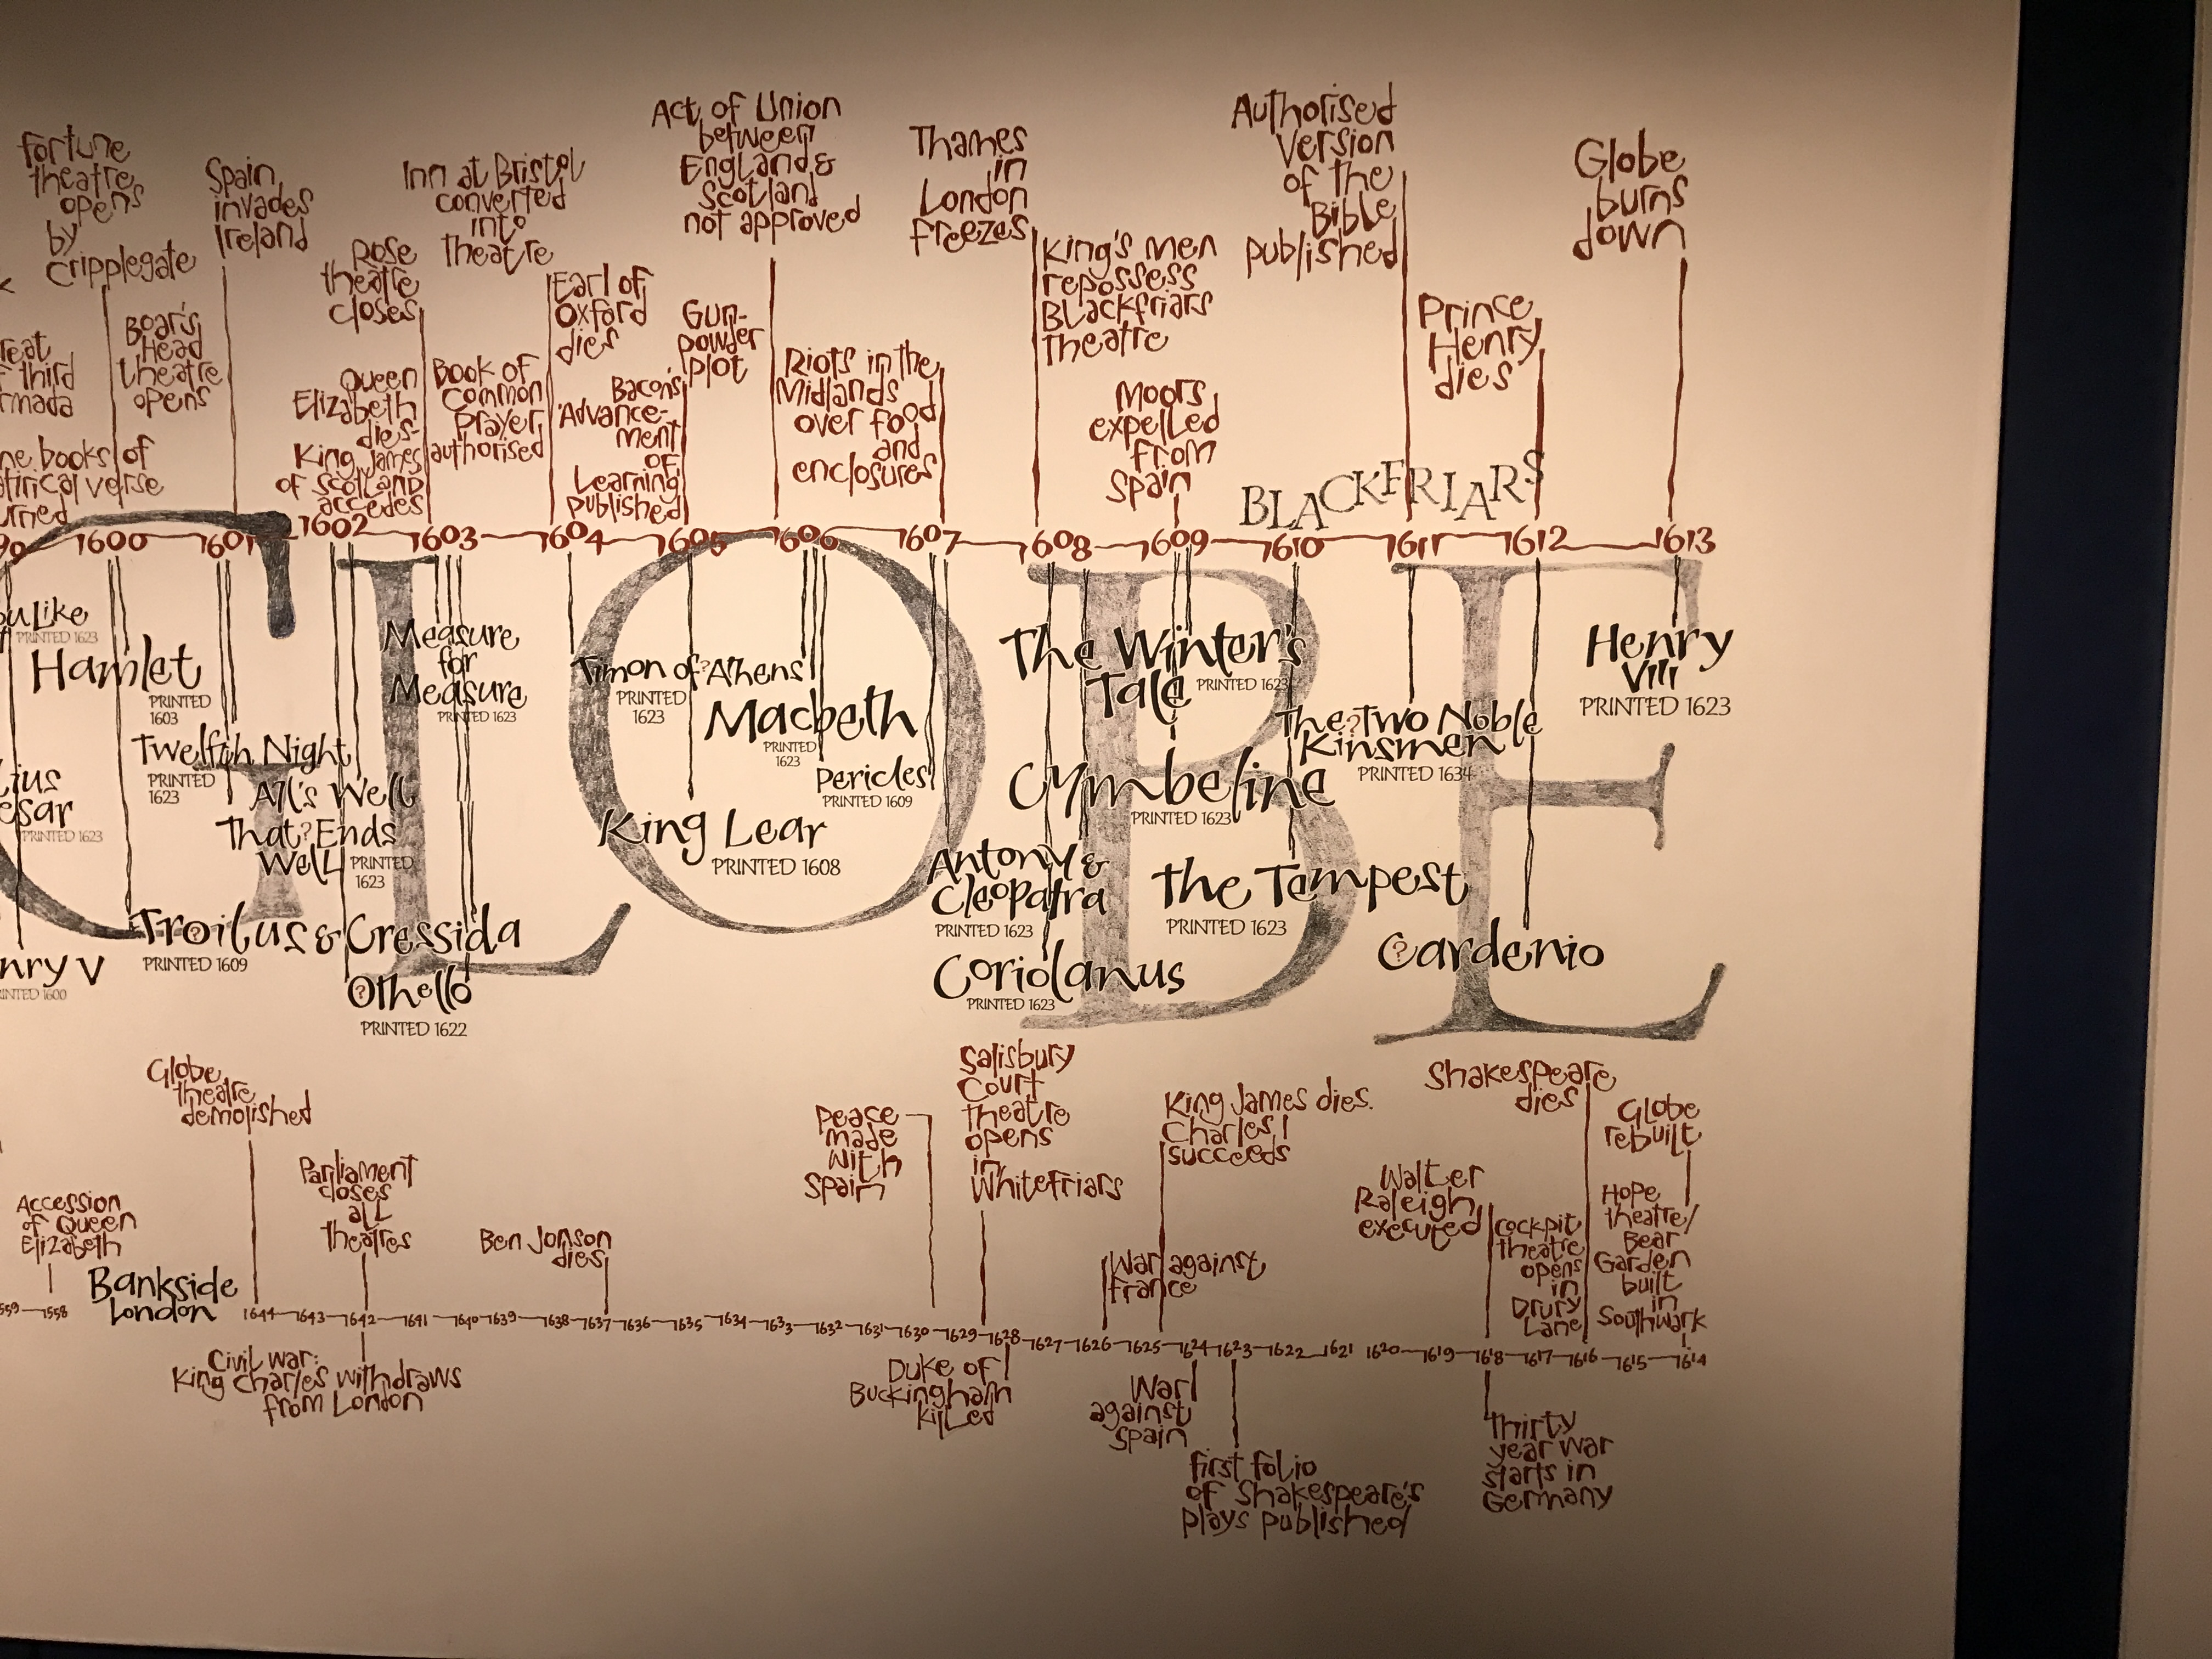 Fortune
theatre
opens
by
Cripplegate
Spain
invades
Ireland
Inn at Bristol
converted
into
theatre
Act of Union
between
England &
Scotland
not approved
Thames
in
London
freezes
Authorised
Version
of the
Bible
published
Globe
burns
down
Boar's
Head
theatre
opens
Rose
theatre
closes
Earl of
Oxford
dies
Gun-
powder
plot
King's men
repossess
Blackfriars
theatre
Prince
Henry
dies
third
Queen
Elizabeth
dies-
King James
of Scotland
accedes
Book of
Common
Prayer
authorised
Bacon's
'Advance-
ment
of
Learning
published
Riots in the
Midlands
over food
and
enclosures
Moors
expelled
from
Spain
books of
verse
BLACKFRIARS
1600 1601 1602 1603 1604 1605 1606 1607 1608 1609 1610 1611 1612 1613
GLOBE
Like
PRINTED 1623
Hamlet
PRINTED
1603
Measure
for
Measure
PRINTED 1623
Timon of ? Athens
PRINTED
1623
Macbeth
PRINTED
1623
Pericles
PRINTED 1609
King Lear
PRINTED 1608
The Winter's
Tale PRINTED 1623
The ? Two Noble
Kinsmen
PRINTED 1634
Henry
VIII
PRINTED 1623
Twelfth Night
PRINTED
1623
All's Well
That ? Ends
Well PRINTED
1623
PRINTED 1623
Cymbeline
PRINTED 1623
Antony &
Cleopatra
PRINTED 1623
The Tempest
PRINTED 1623
Troilus & Cressida
PRINTED 1609
V
1600
? Othello
PRINTED 1622
Coriolanus
PRINTED 1623
? Cardenio
Globe
theatre
demolished
Parliament
closes
all
theatres
Ben Jonson
dies
Peace
made
with
Spain
Salisbury
Court
theatre
opens
in
Whitefriars
King James dies.
Charles I
succeeds
War against
France
Walter
Raleigh
executed
Shakespeare
dies
Cockpit
theatre
opens
in
Drury
Lane
Globe
rebuilt
Hope
theatre/
Bear
Garden
built
in
Southwark
Accession
of Queen
Elizabeth
Bankside
London
1558 1644 1643 1642 1641 1640 1639 1638 1637 1636 1635 1634 1633 1632 1631 1630 1629 1628 1627 1626 1625 1624 1623 1622 1621 1620 1619 1618 1617 1616 1615 1614
Civil war:
King Charles withdraws
from London
Duke of
Buckingham
killed
War
against
Spain
First folio
of Shakespeare's
plays published
Thirty
year war
starts in
Germany